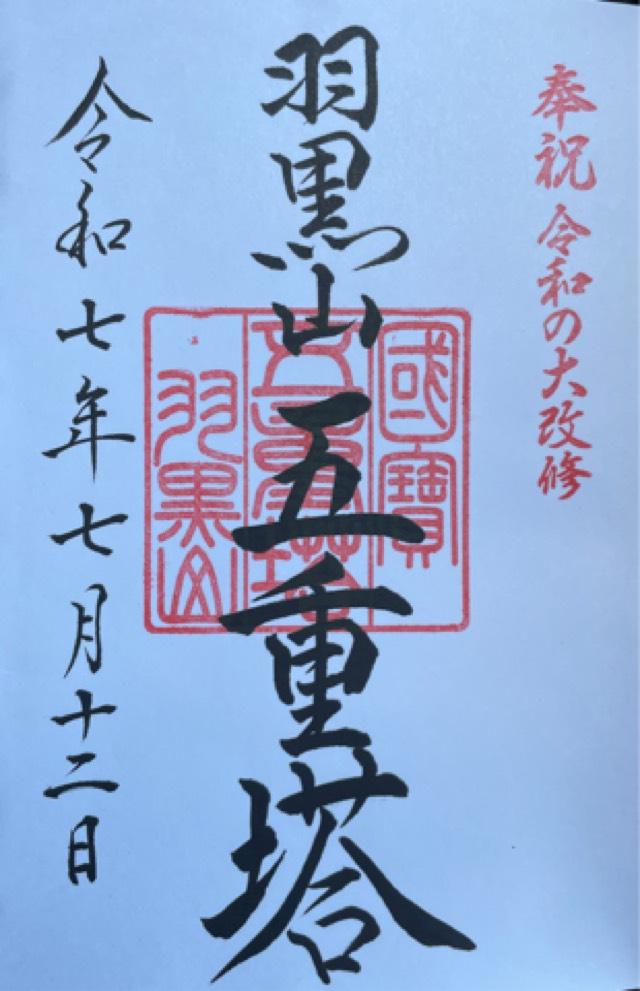 奉祝 令和の大改修
羽黒山五重塔
國寶
五重塔
羽黒山
令和七年七月十二日